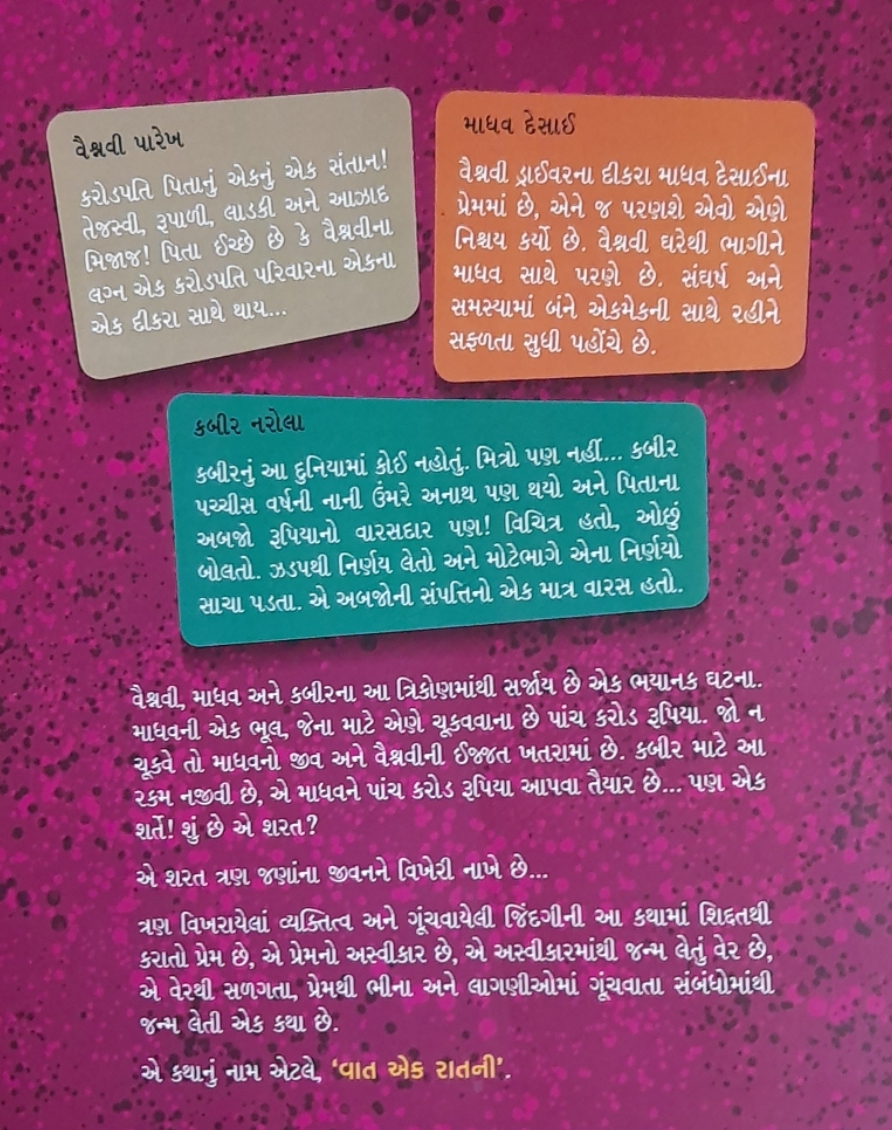 વૈશ્નવી પારેખ
કરોડપતિ પિતાનું એકનું એક સંતાન!
તેજસ્વી, રૂપાળી, લાડકી અને આઝાદ
મિજાજ! પિતા ઈચ્છે છે કે વૈશ્નવીના
લગ્ન એક કરોડપતિ પરિવારના એકના
એક દીકરા સાથે થાય...
માધવ દેસાઈ
વૈશ્નવી ડ્રાઈવરના દીકરા માધવ દેસાઈના
પ્રેમમાં છે, એને જ પરણશે એવો એણે
નિશ્ચય કર્યો છે. વૈશ્નવી ઘરેથી ભાગીને
માધવ સાથે પરણે છે. સંઘર્ષ અને
સમસ્યામાં બંને એકમેકની સાથે રહીને
સફળતા સુધી પહોંચે છે.
કબીર નરોલા
કબીરનું આ દુનિયામાં કોઈ નહોતું. મિત્રો પણ નહીં... કબીર
પચ્ચીસ વર્ષની નાની ઉંમરે અનાથ પણ થયો અને પિતાના
અબજો રૂપિયાનો વારસદાર પણ! વિચિત્ર હતો, ઓછું
બોલતો. ઝડપથી નિર્ણય લેતો અને મોટેભાગે એના નિર્ણયો
સાચા પડતા. એ અબજોની સંપત્તિનો એક માત્ર વારસ હતો.
વૈશ્નવી, માધવ અને કબીરના આ ત્રિકોણમાંથી સર્જાય છે એક ભયાનક ઘટના.
માધવની એક ભૂલ, જેના માટે એણે ચૂકવવાના છે પાંચ કરોડ રૂપિયા. જો ન
ચૂકવે તો માધવનો જીવ અને વૈશ્નવીની ઈજ્જત ખતરામાં છે. કબીર માટે આ
રકમ નજીવી છે, એ માધવને પાંચ કરોડ રૂપિયા આપવા તૈયાર છે... પણ એક
શર્તે! શું છે એ શરત?
એ શરત ત્રણ જણાંના જીવનને વિખેરી નાખે છે...
ત્રણ વિખરાયેલાં વ્યક્તિત્વ અને ગૂંચવાયેલી જિંદગીની આ કથામાં શિદ્દતથી
કરાતો પ્રેમ છે, એ પ્રેમનો અસ્વીકાર છે, એ અસ્વીકારમાંથી જન્મ લેતું વેર છે,
એ વેરથી સળગતા, પ્રેમથી ભીના અને લાગણીઓમાં ગૂંચવાતા સંબંધોમાંથી
જન્મ લેતી એક કથા છે.
એ કથાનું નામ એટલે, ‘વાત એક રાતની’.